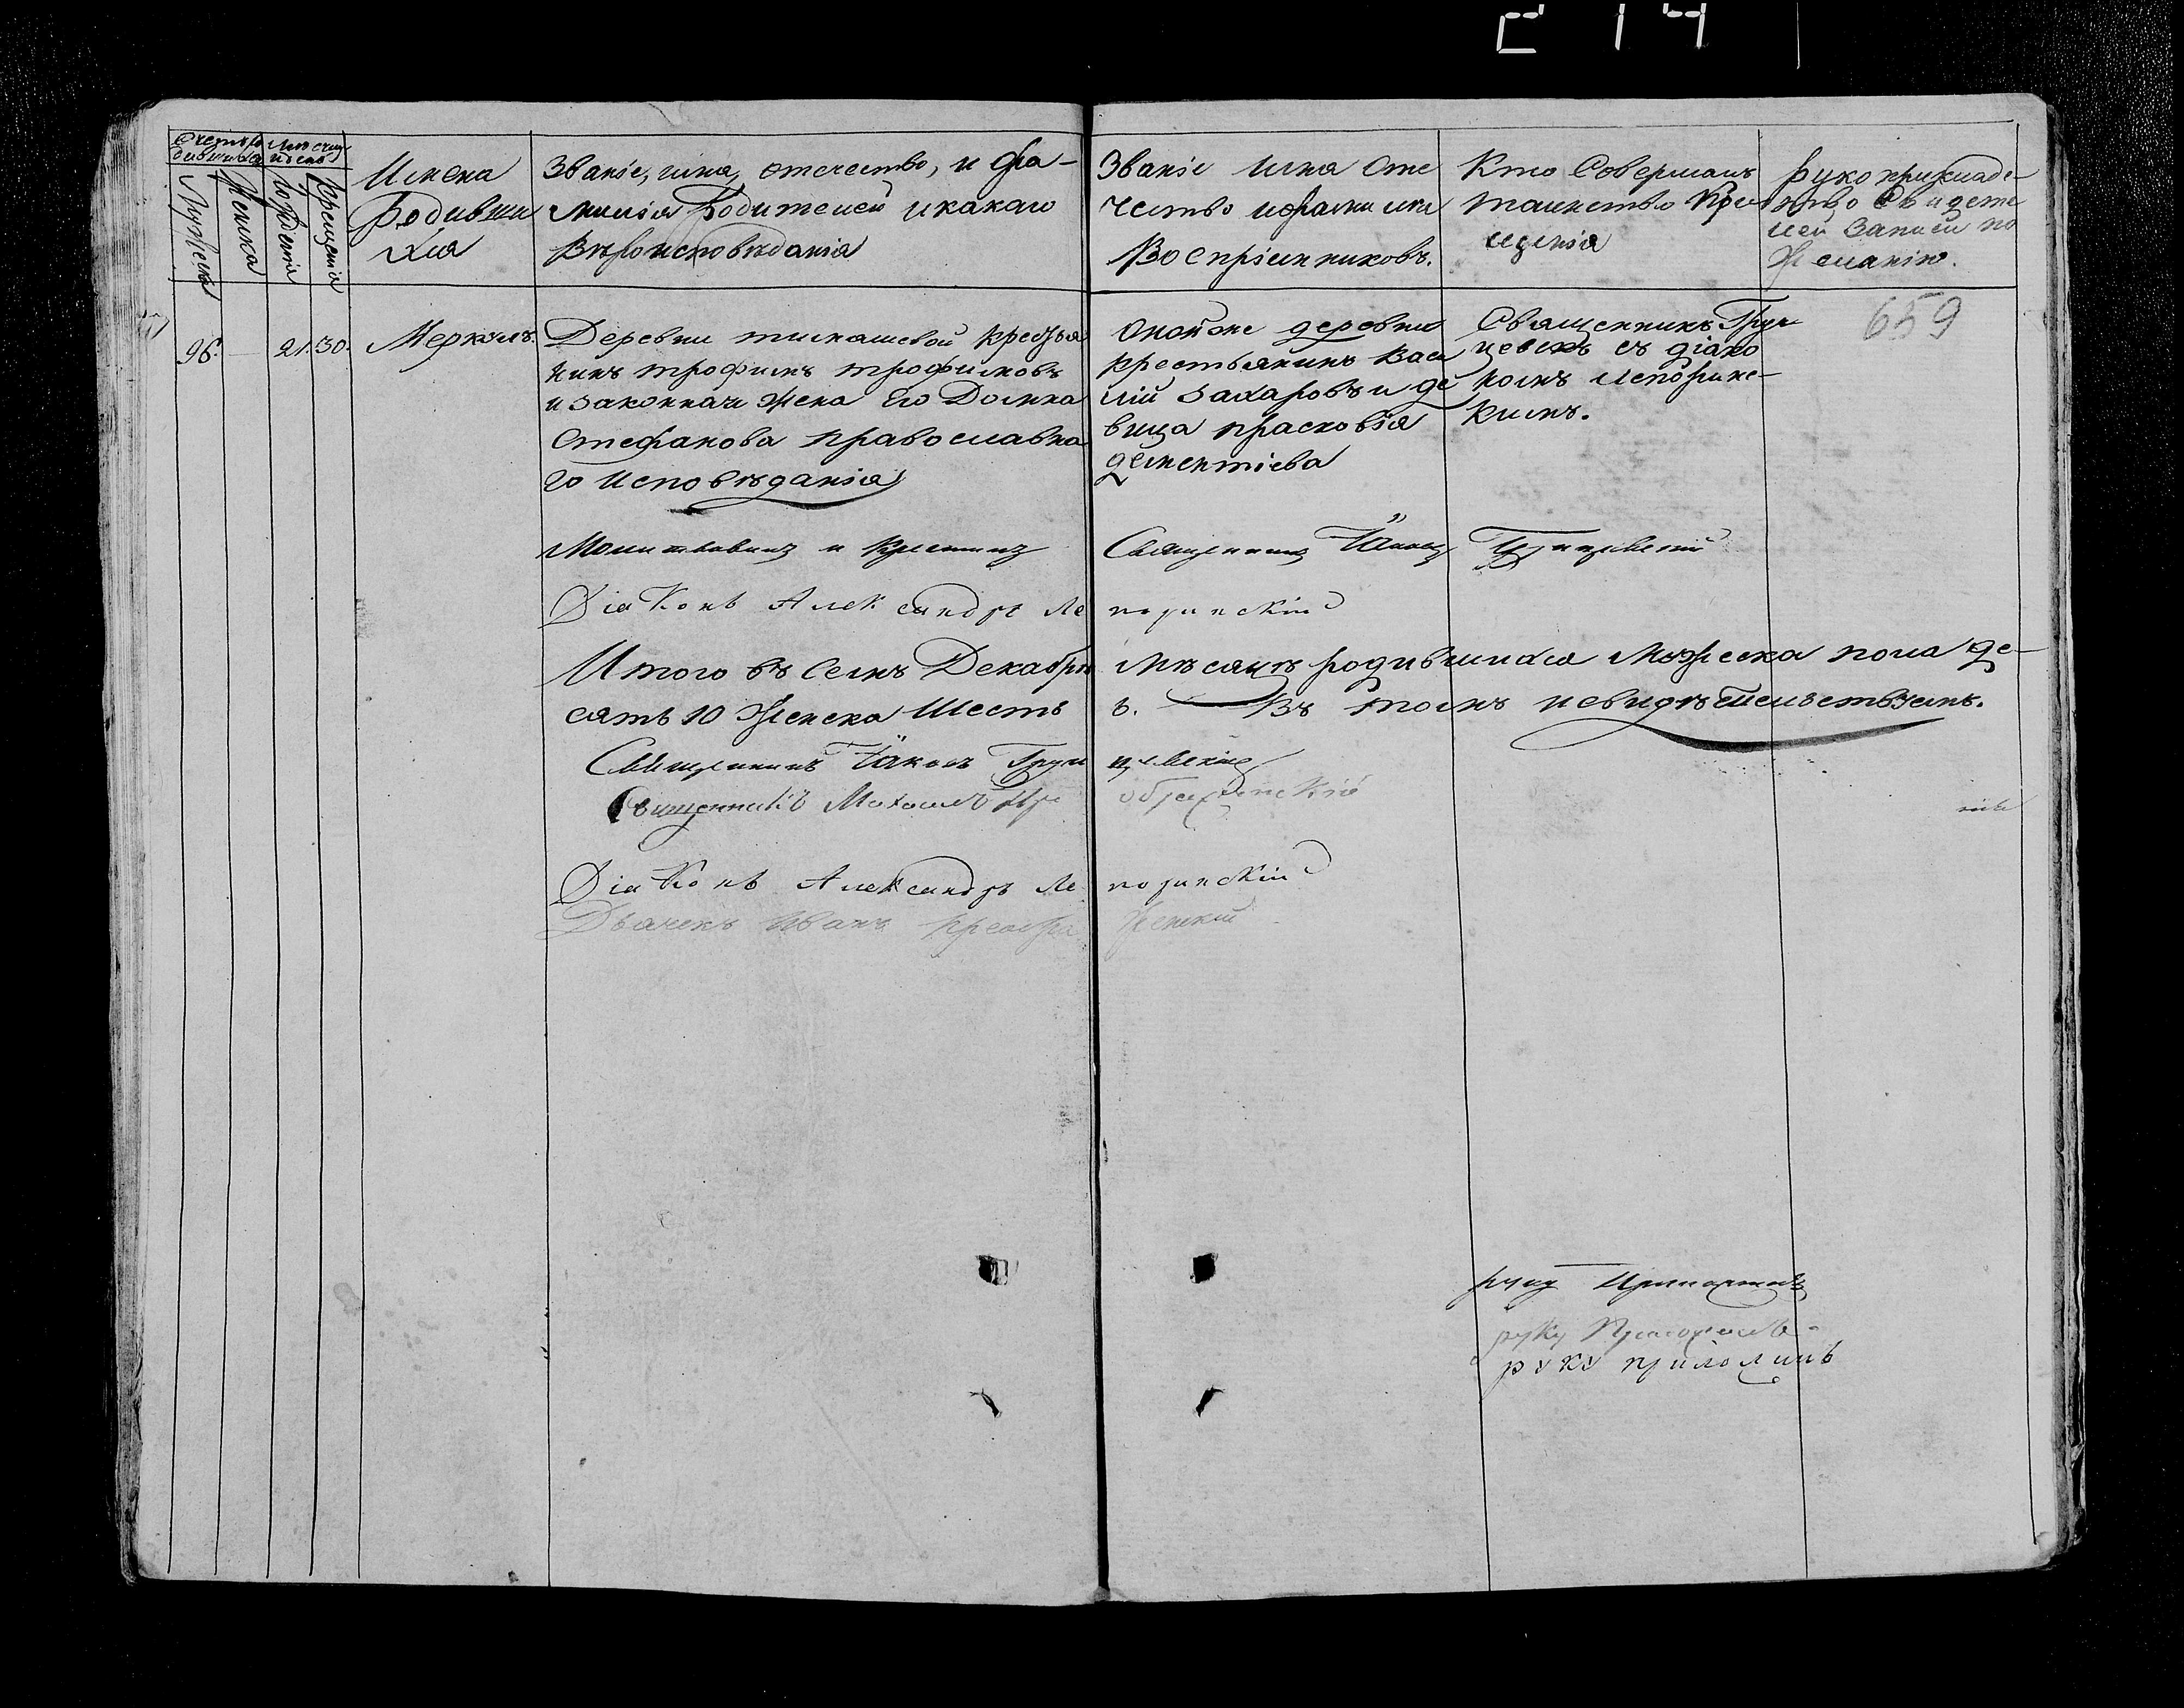 214
Счетъ родившихся
Месяцъ и день
Мужеска
Женска
Рожденія
Крещенія
Имена
Родивши
хся
Званіе, имя, отечество, и фа-
милія Родителей и какаго
Вѣроисповѣданія
Званіе имя Оте
чество и фамилія
Воспріимниковъ.
Кто Совершалъ
таинство Кре
щенія
Рукоприкладс-
тво Свидете
лей Записи по
Желанію.
659
96.
21.
30.
Меркулъ.
Деревни тимашевой Крестья
нинъ трофимъ трофимовъ
и законная жена Его Домна
Стефанова православна
го Исповѣданія
Онойже деревни
крестьянинъ Васи
лій Захаровъ и де
вица прасковія
дементіева
Священникъ Грун
цевск съ діако
номъ Лепорине-
кимъ.
Молитвовалъ и Крестилъ
Священникъ Іаковъ
Діаконъ Александръ Ле
поринскій
Итого въ семъ Декабрѣ
Мѣсяцѣ родившихся Мужеска пола де-
сять 10 Женска Шесть
6. Въ томъ и свидѣтельствуемъ.
Священникъ Іаковъ Грун
цевскій
Священникъ Михаилъ Пре
ображенскій
Діаконъ Александръ Ле
поринскій
Дьячекъ Иванъ Преобра
женский
руку Приложилъ
руку Приложилъ
руку приложилъ